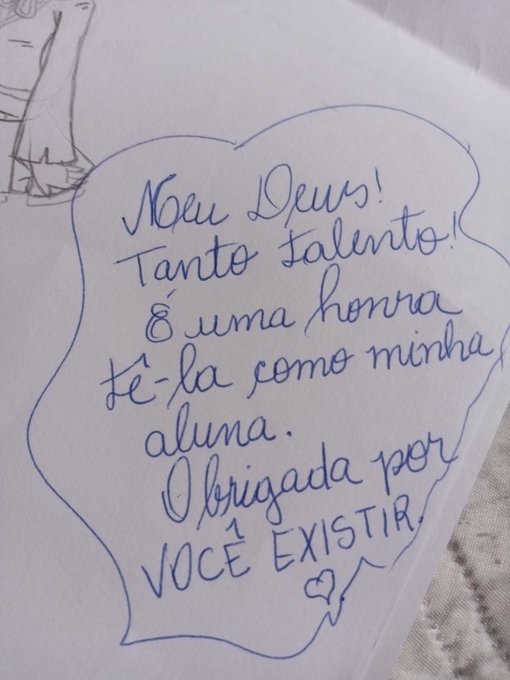 Meu Deus!
Tanto talento!
É uma honra
tê-la como minha
aluna.
Obrigada por
VOCÊ EXISTIR.